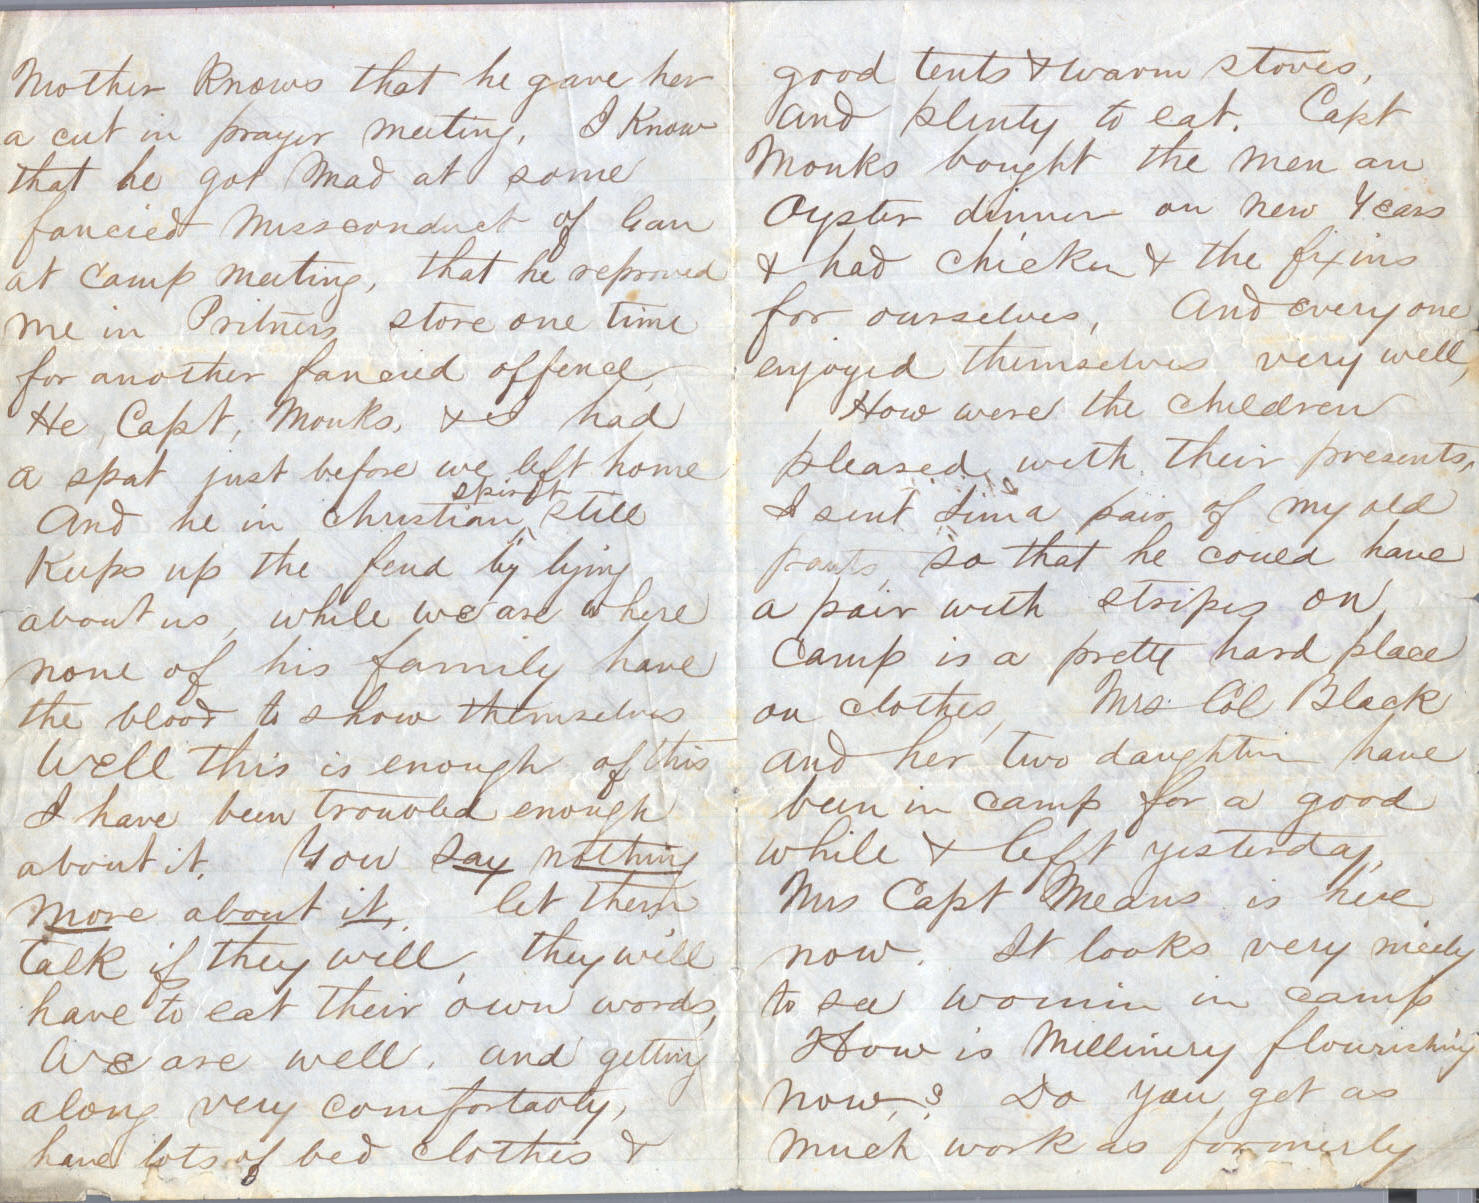 Mother Knows that he gave her
a cut in prayer meeting. I Know
that he got Mad at some
fancied Missconduct of
at Camp Meeting, that he reproved
me in store one time
for another fancied offence,
He, Capt, Monks, & I had
a spat just before we left home
And he in christian spirit still
Keeps up the feud by lying
about us, while we are where
none of his family have
the blood to show themselves
Well this is enough of this
I have been troubled enough
about it. You say nothing
more about it, let them
talk if they will, they will
have to eat their own words,
We are well, and getting
along very comfortably,
have lots of bed clothes &
good tents & warm stoves,
and plenty to eat. Capt
Monks bought the men an
Oyster dinner on New Years
& had chicken & the fixins
for ourselves, And everyone
enjoyed themselves very well,
How were the children
pleased with their presents,
I sent a pair of my old
pants, so that he could have
a pair with stripes on,
Camp is a pretty hard place
on clothes, Mrs Col Black
and her two daughters have
been in camp for a good
while & left yesterday,
Mrs Capt Means is here
now. It looks very nicely
to see women in camp
How is Millinery flourishing
now? Do you get as
much work as formerly